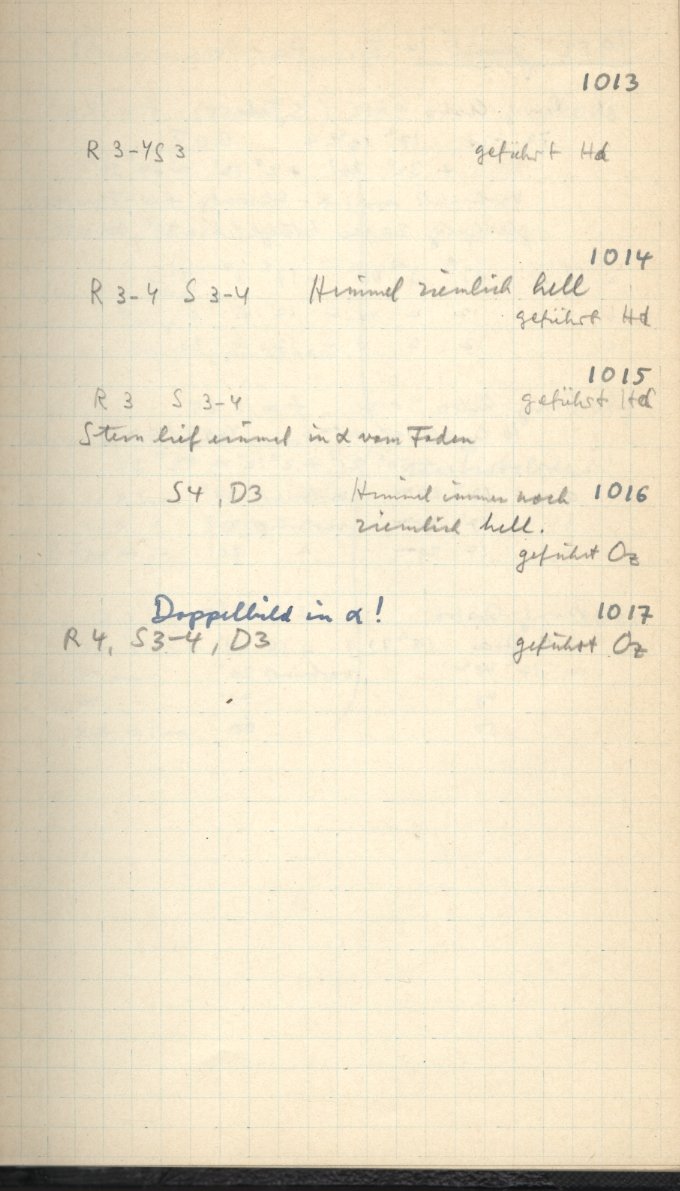 1013
R 3-4 S 3 geführt Hd
1014
R 3-4 S 3-4 Himmel ziemlich hell
geführt Hd
1015
R 3 S 3-4 geführt Hd
Stern lief einmal in α vom Faden
S4, D3 Himmel immer noch 1016
ziemlich hell.
geführt Oz
Doppelbild in α! 1017
R 4, S3-4, D3 geführt Oz